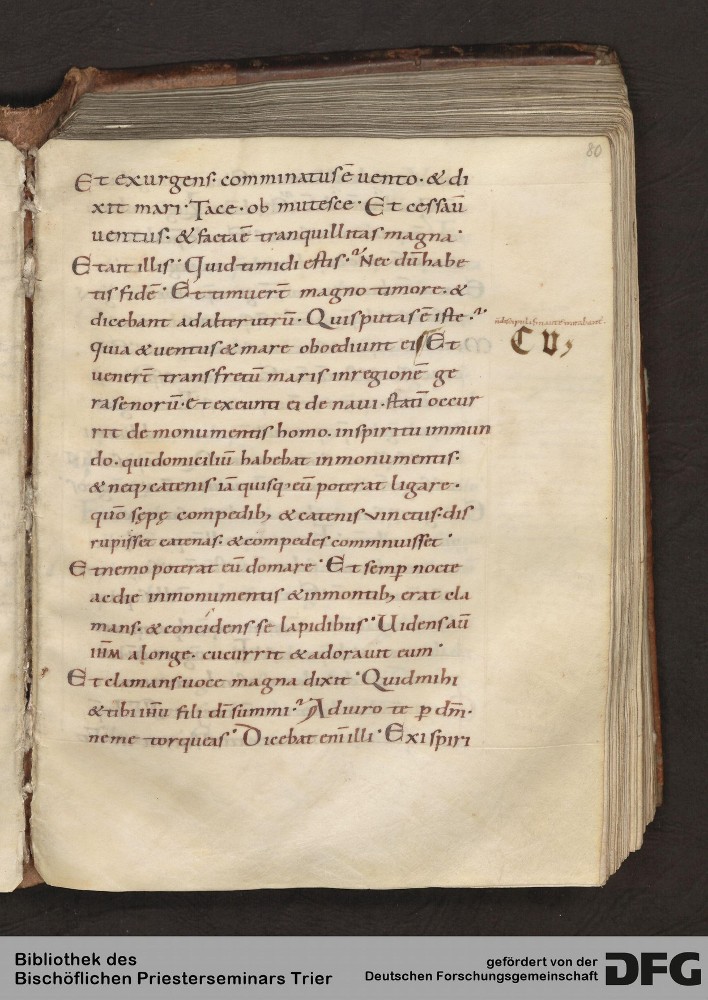 80
Et exurgens· comminatus ē uento· & di
xit mari· Tace· ob mutesce· Et cessau̅
uentus· & facta ē tranquillitas magna·
Et ait illis· Quid timidi estis· Nec du̅ habe
tis fide̅· Et timuert̅ magno timore· &
dicebant adalter utru̅· Quis putas ē iste·
quia & uentus & mare oboediunt ei Et
uenert̅ trans fretu̅ maris in regione̅ ge
rasenoru̅· et exeunti ei de naui· stati̅ occur
rit de monumentis homo· in spiritu immun
do· qui domiciliu̅ habebat in monumentis·
& neq; catenis ia̅ quisq; eu̅ poterat ligare·
quo̅ sępę compedib; & catenis uinctus· dis
rupisset catenas· & compedes comminuisset·
Et nemo poterat eu̅ domare· Et semp̅ nocte
ac die in monumentis & in montib; erat cla
mans· & concidens se lapidibus· Uidens au̅
ih̅m a longe· cucurrit & adorauit eum·
Et clamans uoce magna dixit· Quid mihi
& tibi ih̅u fili di̅ summi· Adiuro te p̲ dm̅·
ne me torqueas· Dicebat eni̅ illi· Exi spiri
CV,
Bibliothek des
Bischöflichen Priesterseminars Trier
gefördert von der
Deutschen Forschungsgemeinschaft
DFG